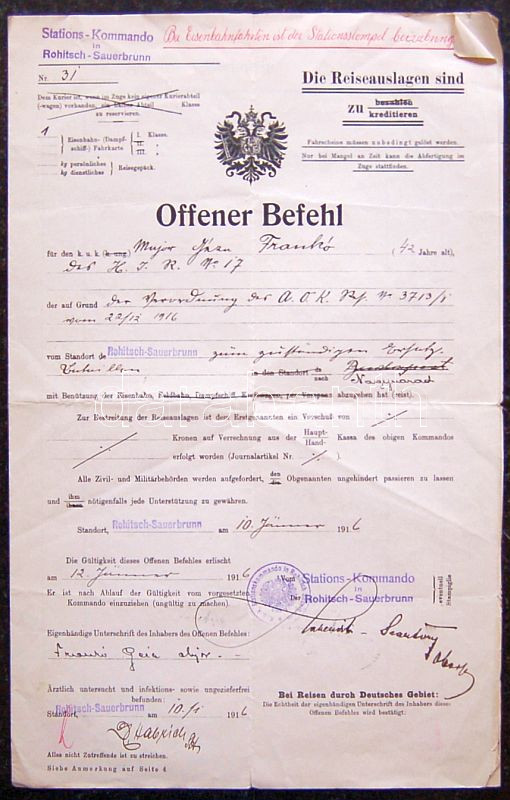 Stations-Kommando
in
Rohitsch-Sauerbrunn
Bei Eisenbahnfahrten ist der Stationsstempel
Nr. 31
Dem Kurier ist, wenn im Zuge kein eigenes Kurierabteil
(-wagen) vorhanden, ein Abteil Klasse
zu reservieren.
Die Reiseauslagen sind
zu bezahlen
kreditieren
1 Eisenbahn- (Dampf- I. Klasse.
schiff-) Fahrkarte II.
III.
kg persönliches Reisegepäck.
kg dienstliches
Fahrscheine müssen unbedingt gelöst werden.
Nur bei Mangel an Zeit kann die Abfertigung im
Zuge stattfinden.
Offener Befehl
für den k. u. k. (k. ung.) Major Géza Frankó (42 Jahre alt),
des H. I. R. No 17
der auf Grund der Verordnung des A.O.K. No 3713/
vom 22/12 1916
vom Standort de Rohitsch-Sauerbrunn zum zuständigen Ersatz-
in den Standort de
nach Budapest
Nagyvarad
mit Benützung der Eisenbahn, Feldbahn, Dampfschiff, per Vorspann abzugehen hat (reist).
Zur Bestreitung der Reiseauslagen ist der Erstgenannten ein Vorschuß von ·/·
·/· Kronen auf Verrechnung aus der Haupt-
Hand- Kassa des obigen Kommandos
erfolgt worden (Journalartikel Nr. ·/· ).
Alle Zivil- und Militärbehörden werden aufgefordert, den
die Obgenannten ungehindert passieren zu lassen
und ihm
ihnen nötigenfalls jede Unterstützung zu gewähren.
Standort, Rohitsch-Sauerbrunn am 10. Jänner 1916
Die Gültigkeit dieses Offenen Befehles erlischt
am 12 Jänner 1916
Er ist nach Ablauf der Gültigkeit vom vorgesetzten
Kommando einzuziehen (ungültig zu machen).
Vom
Der
Stations-Kommando
in
Rohitsch-Sauerbrunn
eventuell
Stampiglie
Eigenhändige Unterschrift des Inhabers des Offenen Befehles:
Frankó Géza Major
Ärztlich untersucht und infektions- sowie ungezieferfrei
befunden:
Rohitsch-Sauerbrunn
Standort, am 10./1 1916
Alles nicht Zutreffende ist zu streichen.
Siehe Anmerkung auf Seite 4
Bei Reisen durch Deutsches Gebiet:
Die Echtheit der eigenhändigen Unterschrift des Inhabers dieses
Offenen Befehles wird bestätigt: